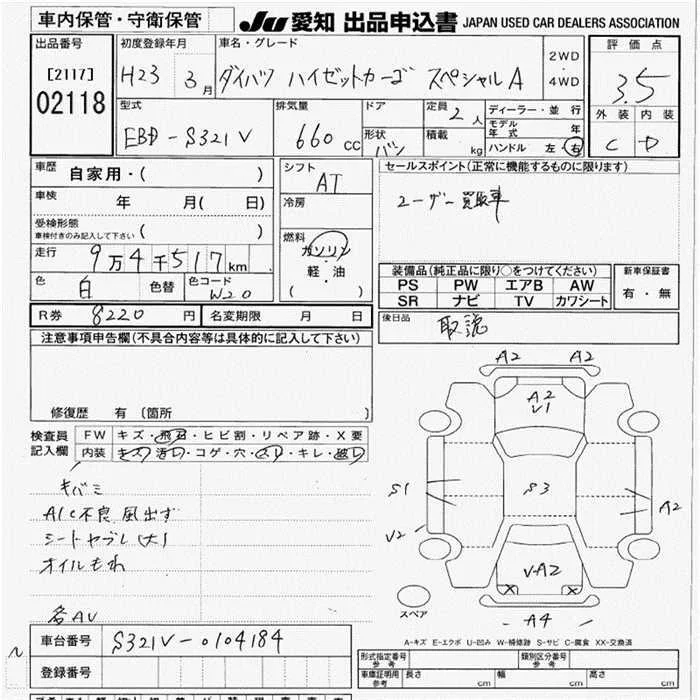 車内保管・守衛保管
JU 愛知 出品申込書 JAPAN USED CAR DEALERS ASSOCIATION
出品番号
[2117]
02118
初度登録年月
H23 3月
車名・グレード
ダイハツ ハイゼットカーゴ スペシャルA
2WD
・
4WD
評価点
3.5
外装 内装
C D
型式
EBD-S321V
排気量
660cc
ドア
形状
バン
定員 2人
積載 kg
ディーラー・並行
モデル年式 年
ハンドル 左・右
車歴 自家用・( )
車検 年 月( 日)
受検形態
車検付きのみ記入して下さい ( )
走行 9万4千517km
色 白 色替 色コード W20
シフト
AT
冷房
燃料
ガソリン
・
軽・油
( )
セールスポイント(正常に機能するものに限ります)
ユーザー買取車
装備品(純正品に限り○をつけてください)
PS PW エアB AW
SR ナビ TV カワシート
新車保証書
有・無
R券 8220円 名変期限 月 日
後日品 取説
注意事項申告欄(不具合内容等は具体的に記入して下さい)
修復歴 有 〔箇所 〕
検査員記入欄
FW キズ・飛石・ヒビ割・リペア跡・X要
内装 キズ・汚レ・コゲ・穴・スレ・キレ・破レ
キバミ
A/C不良 風出ず
シートヤブレ(大)
オイルもれ
各AU
A2 A2
A2
V1
S1
S3
A2
V2
V-A2
X X
スペア
-A4-
A-キズ E-エクボ U-凹み W-補修跡 S-サビ C-腐食 XX-交換済
車台番号 S321V-0104184
登録番号
形式指定番号 参考
類別区分番号 参考
車庫証明用 参考
長さ cm 幅 cm 高さ cm